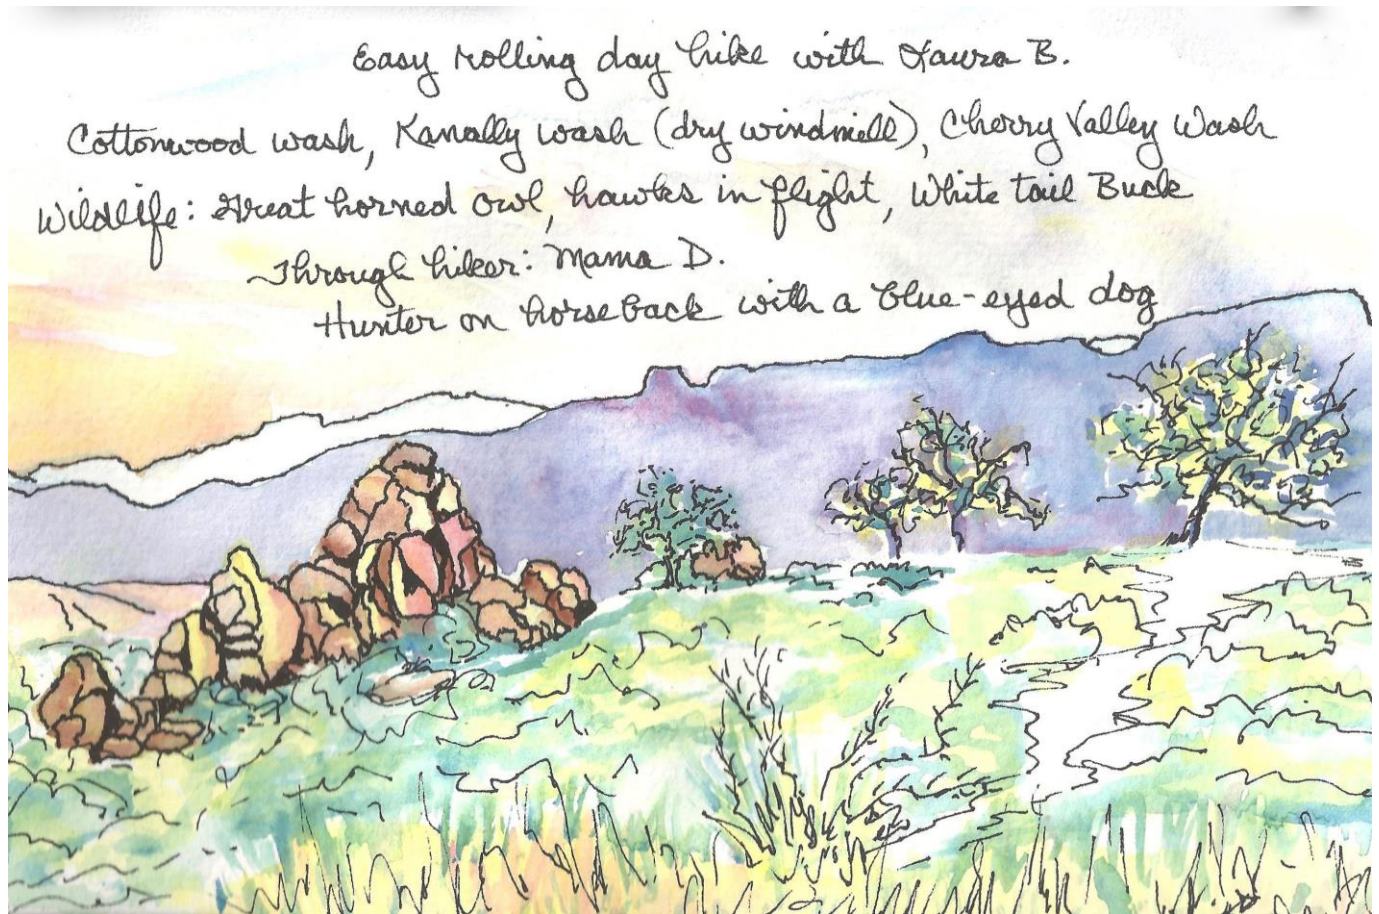 Easy rolling day hike with Laura B.
Cottonwood wash, Kanally wash (dry windmill), Cherry Valley Wash
Wildlife: Great horned owl, hawks in flight, White tail Buck
Through hiker: Mama D.
Hunter on horseback with a blue-eyed dog